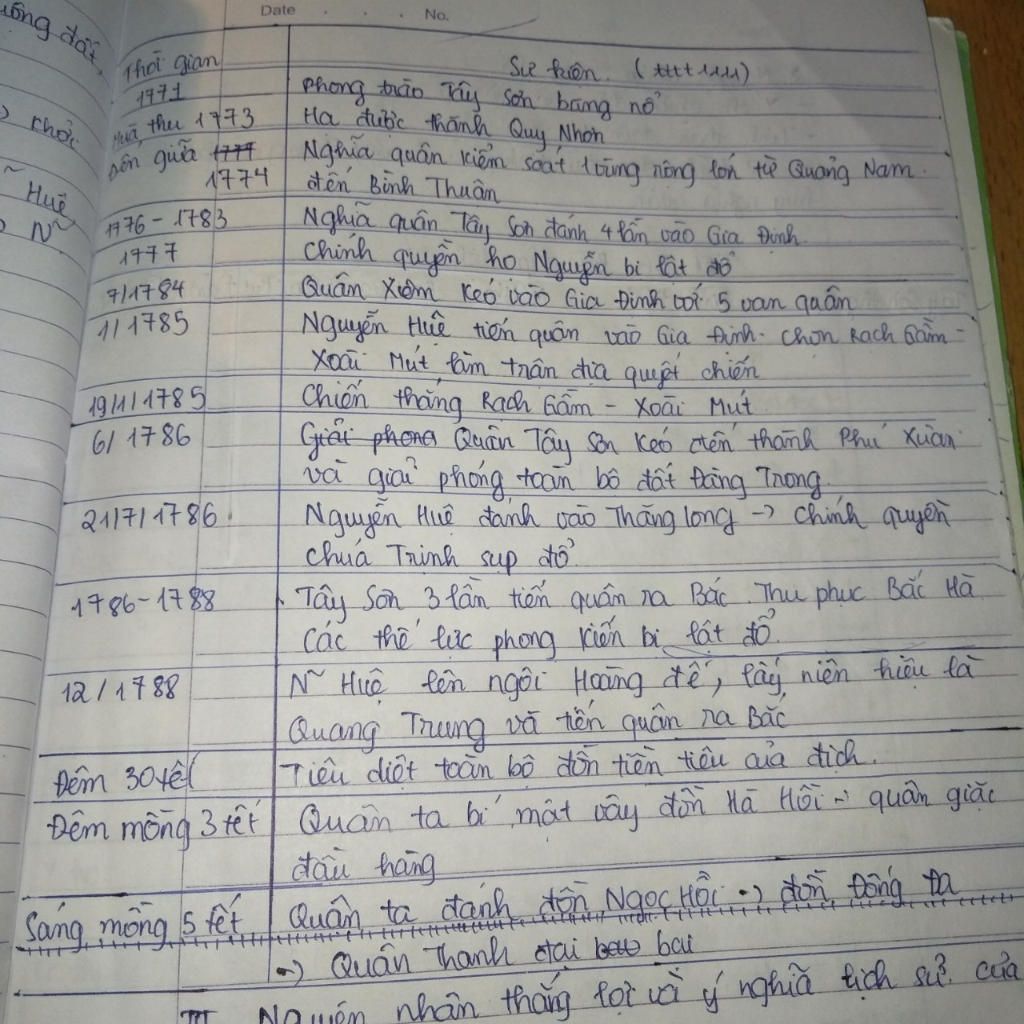 ruộng đất,
Date . . . No.
Thời gian Sự kiện. (tttt
1771 Phong trào Tây Sơn bùng nổ
Mùa thu 1773 Hạ được thành Quy Nhơn
Đến giữa 1777 Nghĩa quân kiểm soát 1 vùng rộng lớn từ Quảng Nam.
1774 đến Bình Thuận
1776 - 1783 Nghĩa quân Tây Sơn đánh 4 lần vào Gia Định.
1777 Chính quyền họ Nguyễn bị lật đổ
7/1784 Quân Xiêm kéo vào Gia Định với 5 vạn quân
1/1785 Nguyễn Huệ tiến quân vào Gia Định. chọn Rạch Gầm -
Xoài Mút làm trận địa quyết chiến
19/1/1785 Chiến thắng Rạch Gầm - Xoài Mút
6/1786 Giải phóng Quân Tây Sơn kéo đến thành Phú Xuân
và giải phóng toàn bộ đất Đàng Trong.
21/7/1786 Nguyễn Huệ đánh vào Thăng long -> chính quyền
chúa Trịnh sụp đổ
1786-1788 Tây Sơn 3 lần tiến quân ra Bắc. Thu phục Bắc Hà
Các thế lực phong kiến bị lật đổ.
12/1788 N~ Huệ lên ngôi Hoàng đế, lấy niên hiệu là
Quang Trung và tiến quân ra Bắc
Đêm 30 tết Tiêu diệt toàn bộ đồn tiền tiêu của địch.
Đêm mồng 3 tết Quân ta bí mật vây đồn Hà Hồi -> quân giặc
đầu hàng
Sáng mồng 5 tết Quân ta đánh đồn Ngọc Hồi -> đồn Đống Đa
-> Quân Thanh đại bại
III Nguyên nhân thắng lợi và ý nghĩa lịch sử của
~ Huệ
N~